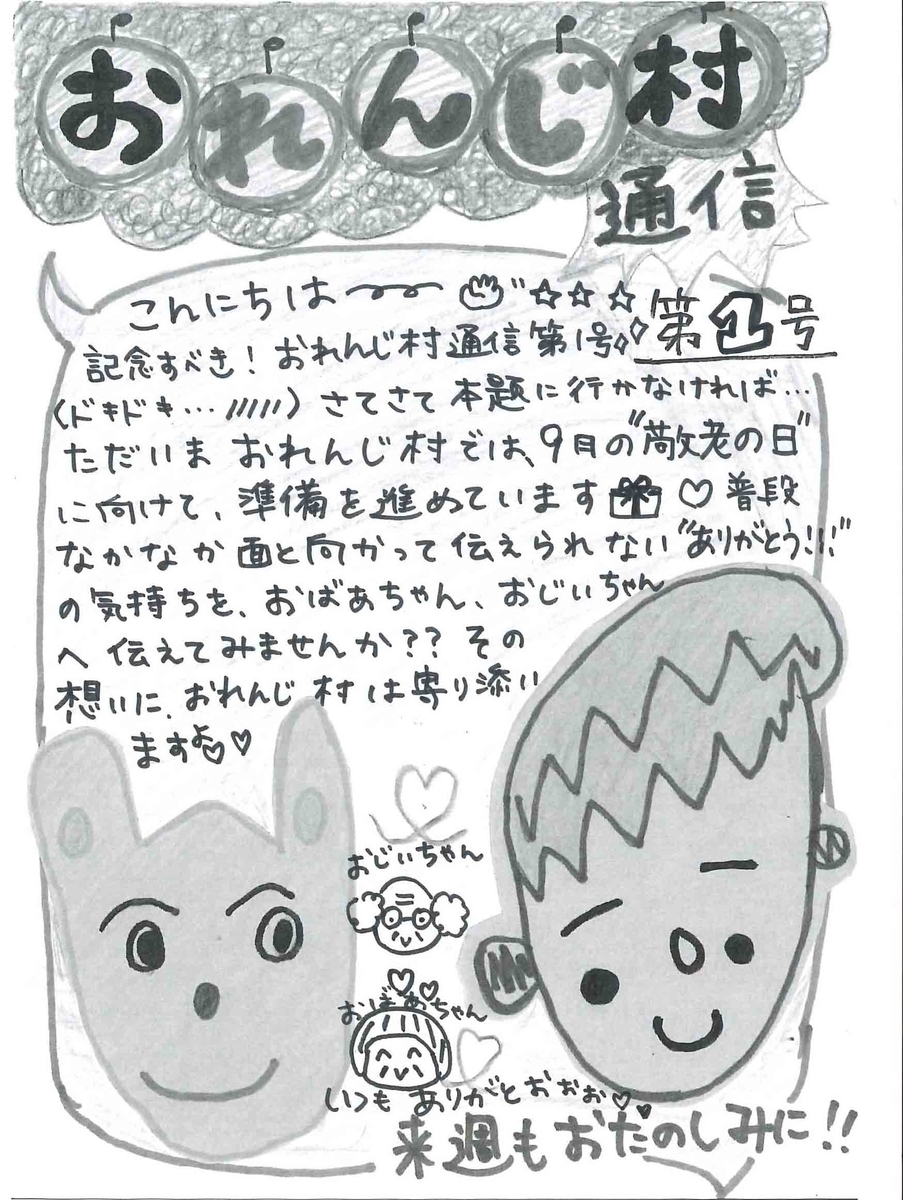 おれんじ村
通信
第1号
こんにちは〰〰 ☆☆☆
記念すべき！おれんじ村通信第1号
(ドキドキ…/////) さてさて本題に行かなければ…
ただいま おれんじ村では、9月の"敬老の日"
に向けて、準備を進めています ♡ 普段
なかなか面と向かって伝えられない"ありがとう!!!"
の気持ちを、おばあちゃん、おじいちゃん
へ 伝えてみませんか？？その
想いに、おれんじ村は寄り添い
ますよ♡♡
おじいちゃん
おばあちゃん
いつも ありがとおぉぉ♡♥
来週もおたのしみに!!